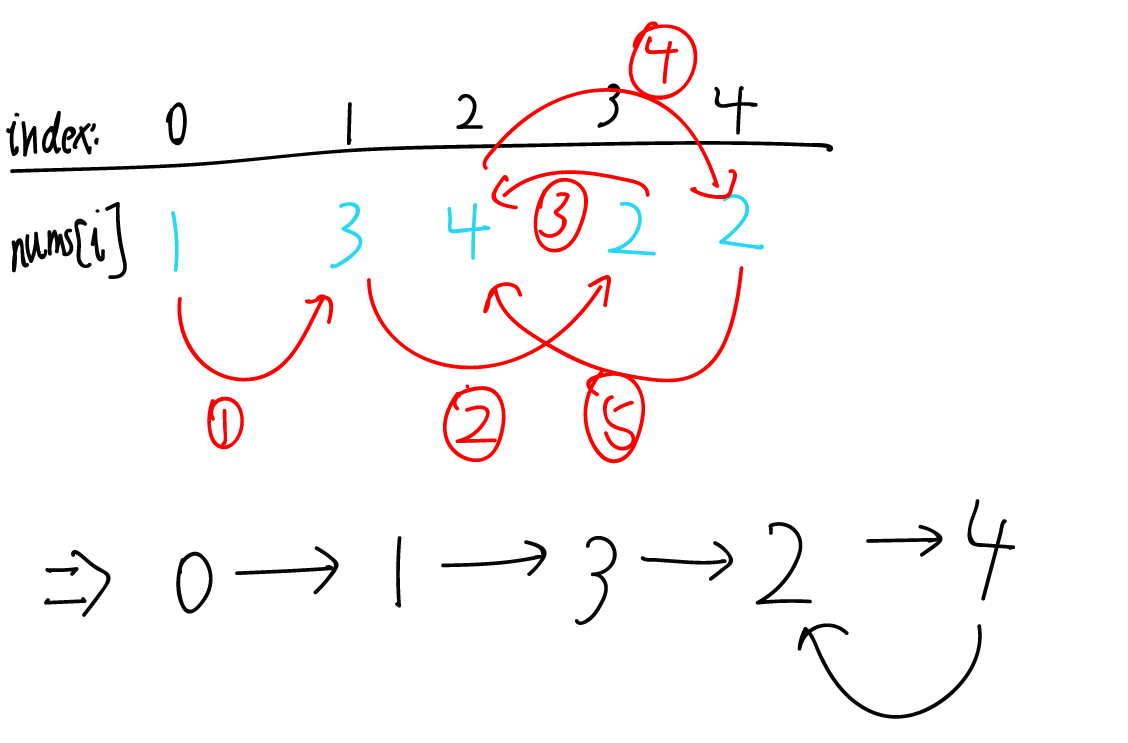 ④
index: 0 1 2 3 4
nums[i] 1 3 4 2 2
③
① ② ⑤
⇒ 0 → 1 → 3 → 2 → 4